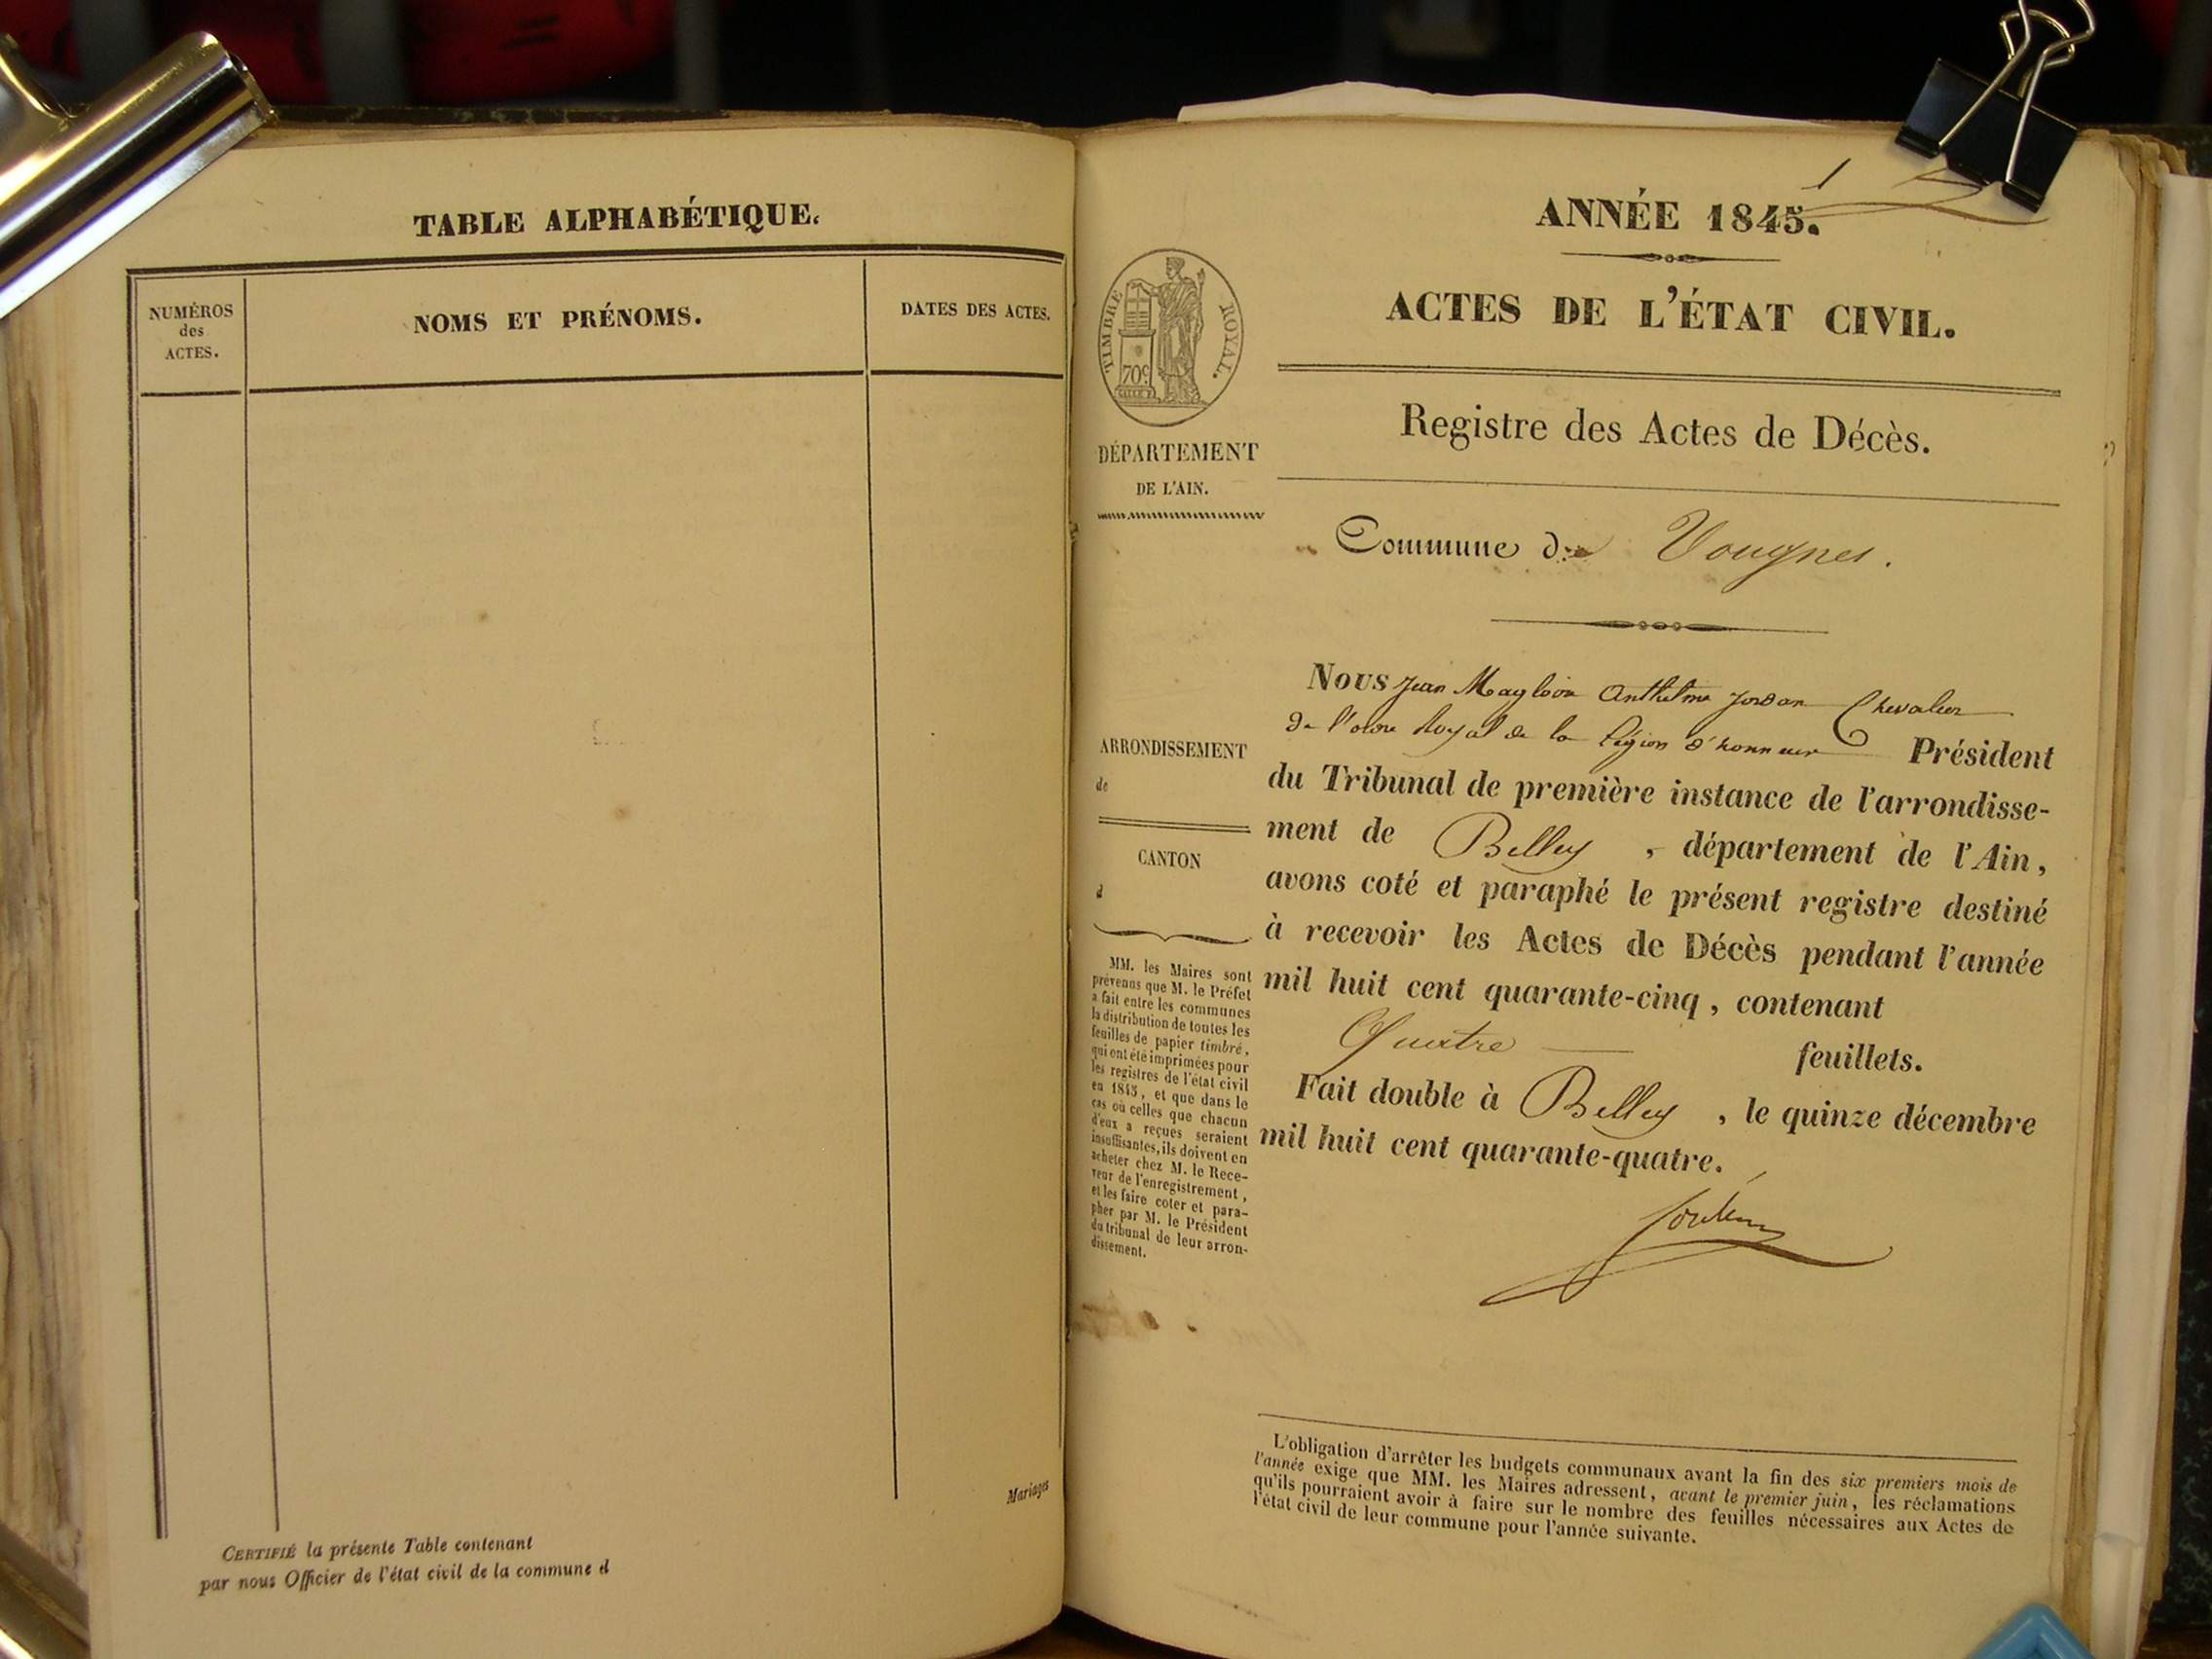 TABLE ALPHABÉTIQUE.
NUMÉROS
des
ACTES.
NOMS ET PRÉNOMS.
DATES DES ACTES.
Mariages
CERTIFIÉ la présente Table contenant
par nous Officier de l'état civil de la commune d
1
ANNÉE 1845.
TIMBRE ROYAL.
70c
ACTES DE L'ÉTAT CIVIL.
Registre des Actes de Décès.
DÉPARTEMENT
DE L'AIN.
Commune de Vougnes.
ARRONDISSEMENT
de
CANTON
d
MM. les Maires sont
prévenus que M. le Préfet
a fait entre les communes
la distribution de toutes les
feuilles de papier timbré,
qui ont été imprimées pour
les registres de l'état civil
en 1845, et que dans le
cas où celles que chacun
d'eux a reçues seraient
insuffisantes, ils doivent en
acheter chez M. le Rece-
veur de l'enregistrement,
et les faire coter et para-
pher par M. le Président
du tribunal de leur arron-
dissement.
Nous Jean Magloire Anthelme Jordan Chevalier
De l'ordre Royal de la Légion d'honneur Président
du Tribunal de première instance de l'arrondisse-
ment de Belley, département de l'Ain,
avons coté et paraphé le présent registre destiné
à recevoir les Actes de Décès pendant l'année
mil huit cent quarante-cinq, contenant
Quatre feuillets.
Fait double à Belley, le quinze décembre
mil huit cent quarante-quatre.
Jordan
L'obligation d'arrêter les budgets communaux avant la fin des six premiers mois de
l'année exige que MM. les Maires adressent, avant le premier juin, les réclamations
qu'ils pourraient avoir à faire sur le nombre des feuilles nécessaires aux Actes de
l'état civil de leur commune pour l'année suivante.